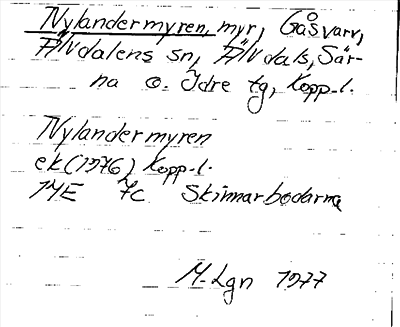 Nylandermyren, myr, Gåsvarv,
Älvdalens sn, Älvdals, Sär-
na o. Idre tg, Kopp. l.
Nylandermyren
ek (1976) Kopp. l.
14E 7c Skinnarbodarna
M. Lgn 1977